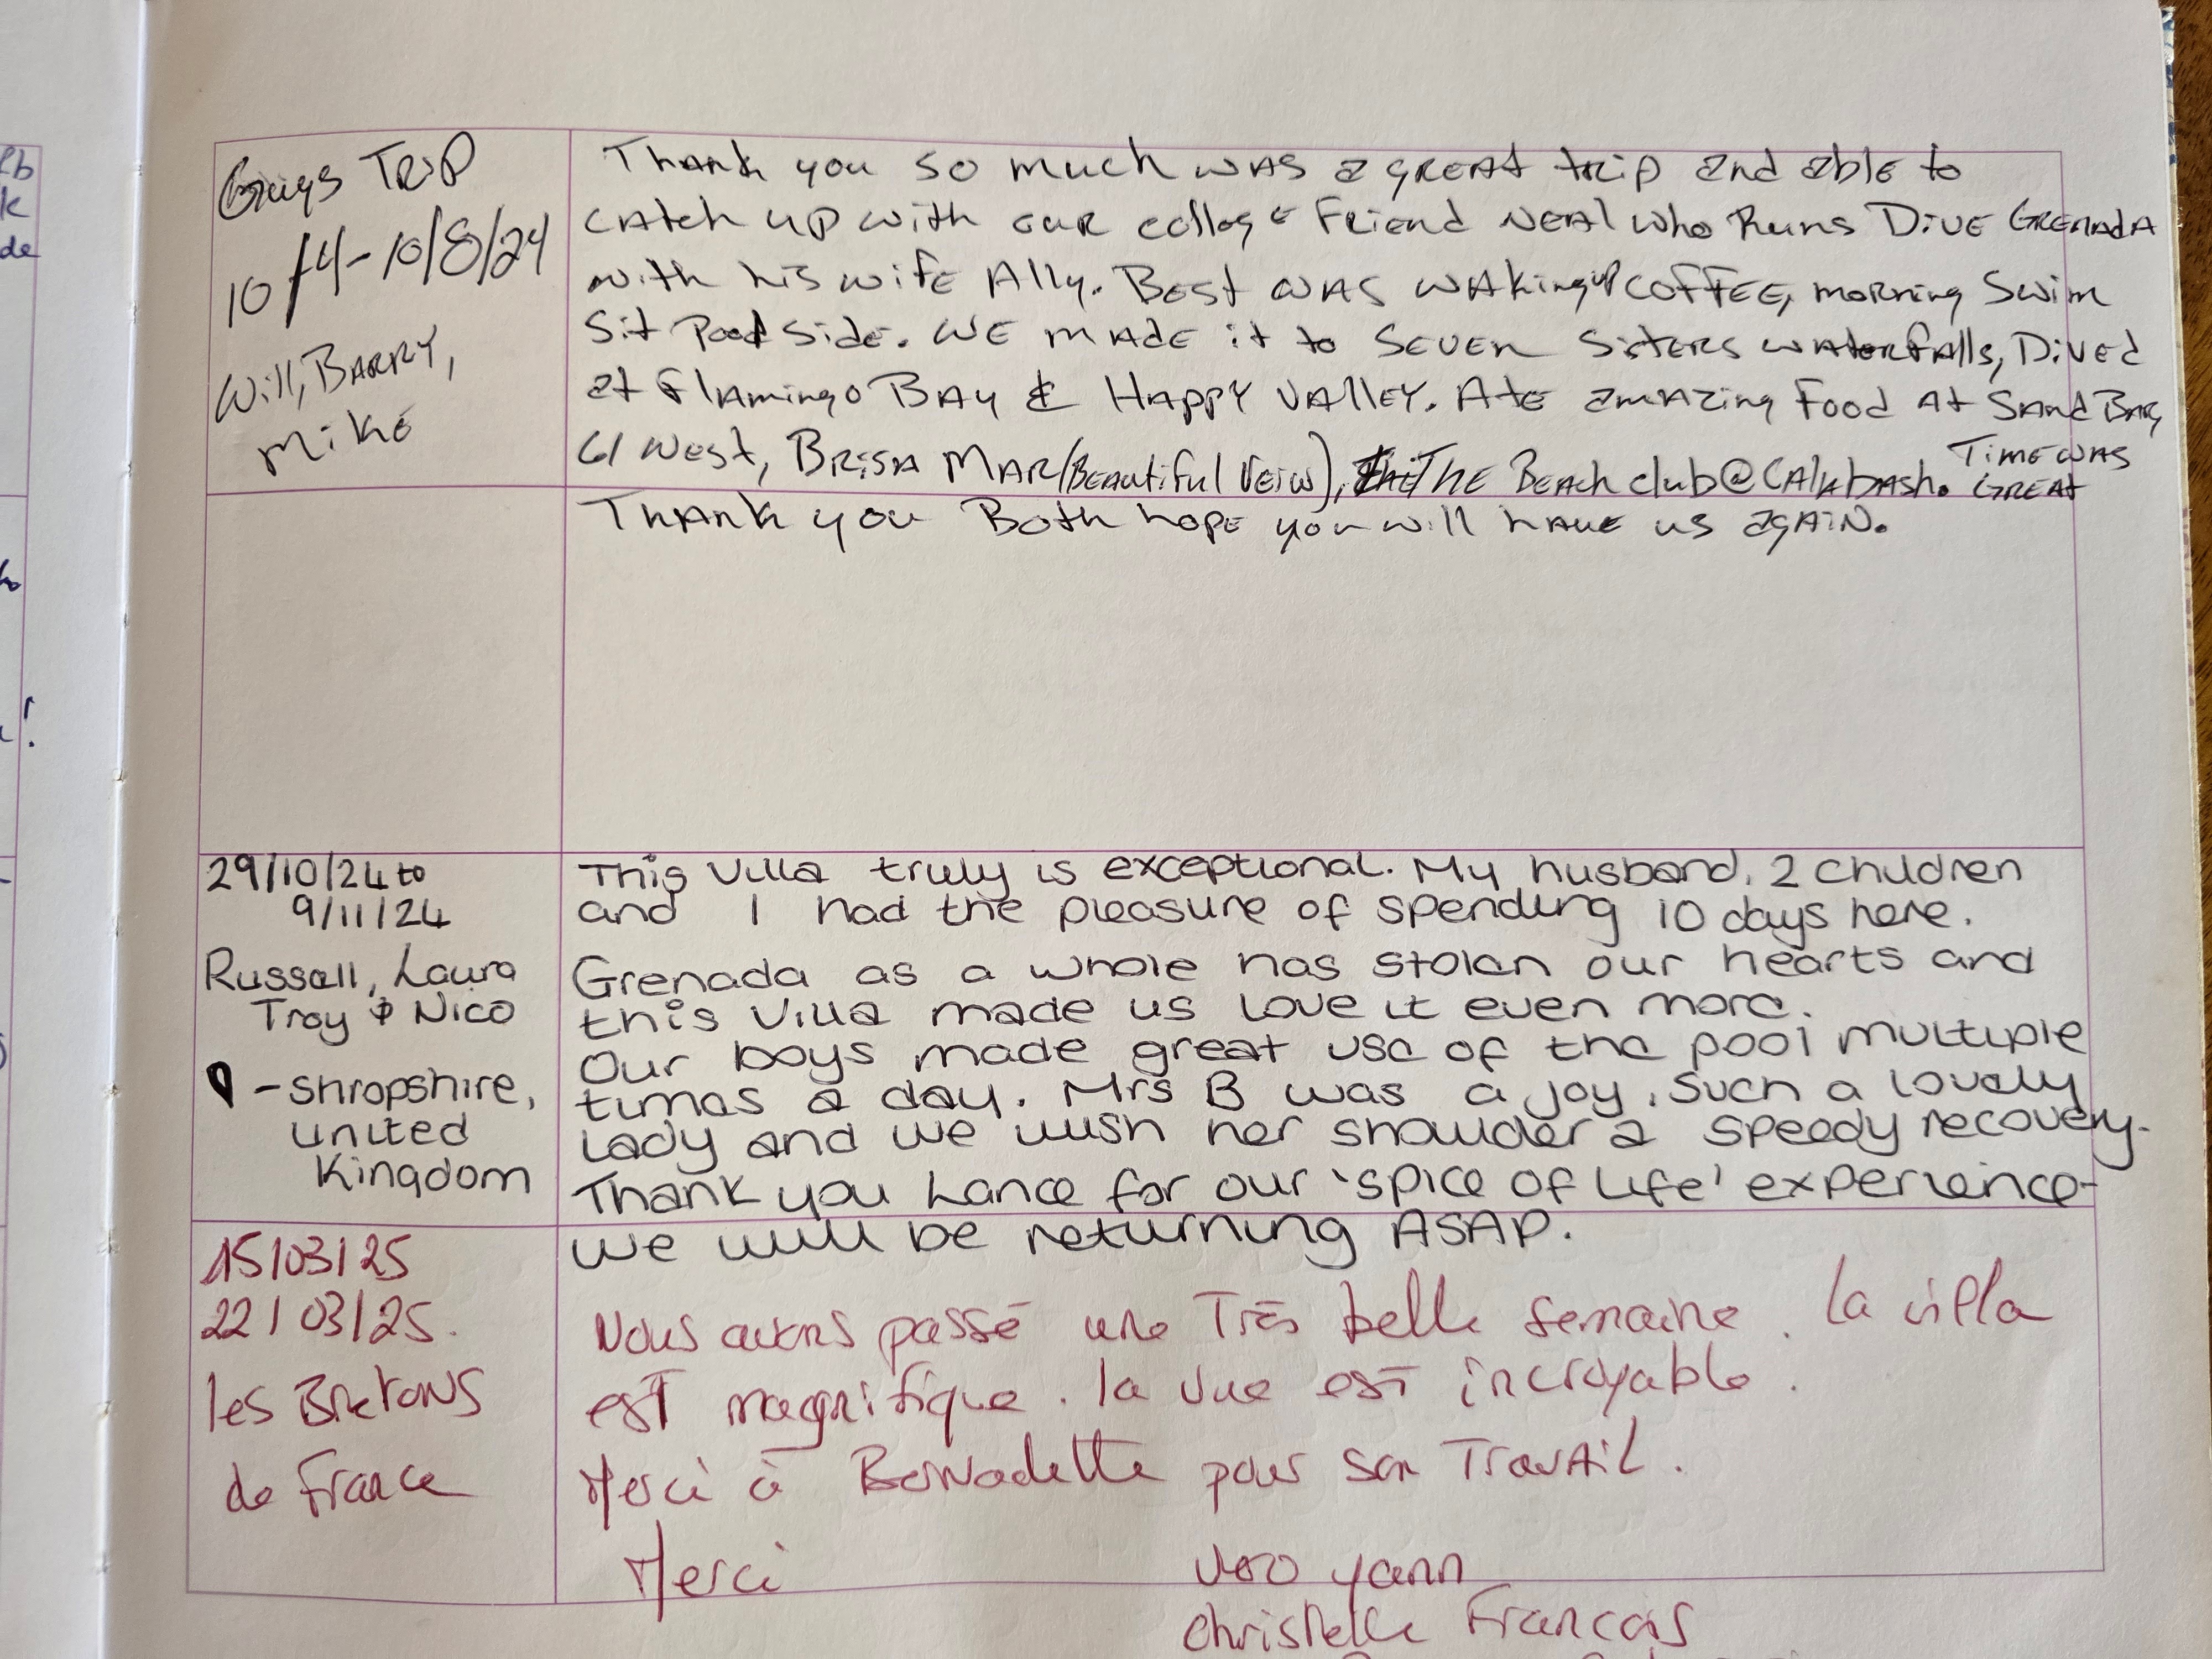 Guys Trip
10/4-10/8/24
Will, Barry,
Mike
Thank you so much was a great trip and able to
catch up with our colloge friend Neal who Runs Dive Grenada
with his wife Ally. Best was waking up coffee, morning swim
Sit Pool Side. We made it to Seven Sisters waterfalls, Dived
at Flamingo Bay & Happy Valley. Ate amazing food at Sand Bar,
61 West, Brisa Mar (Beautiful Veiw), The Beach club @ Calabash. Time was
Great
Thank you Both hope you will have us again.
29/10/24 to
9/11/24
Russell, Laura
Troy & Nico
- Shropshire,
United
Kingdom
This Villa truly is exceptional. My husband, 2 children
and I had the pleasure of spending 10 days here.
Grenada as a whole has stolen our hearts and
this Villa made us love it even more.
Our boys made great use of the pool multiple
times a day. Mrs B was a joy, such a lovely
lady and we wish her shoulder a speedy recovery.
Thank you Lance for our 'spice of life' experience-
we will be returning ASAP.
15/03/25
22/03/25.
les Bretons
de France
Nous avons passé une Très belle semaine. la villa
est magnifique. la vue est incroyable.
Merci à Bernadette pour son Travail.
Merci
Vero yann
Christelle Francois